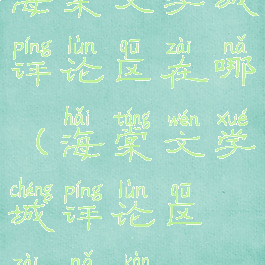 海棠文学城
píng lùn qū zài nǎ
评论区在哪
hǎi táng wén xué
（海棠文学
chéng píng lùn qū
城评论区
zài nǎ kàn